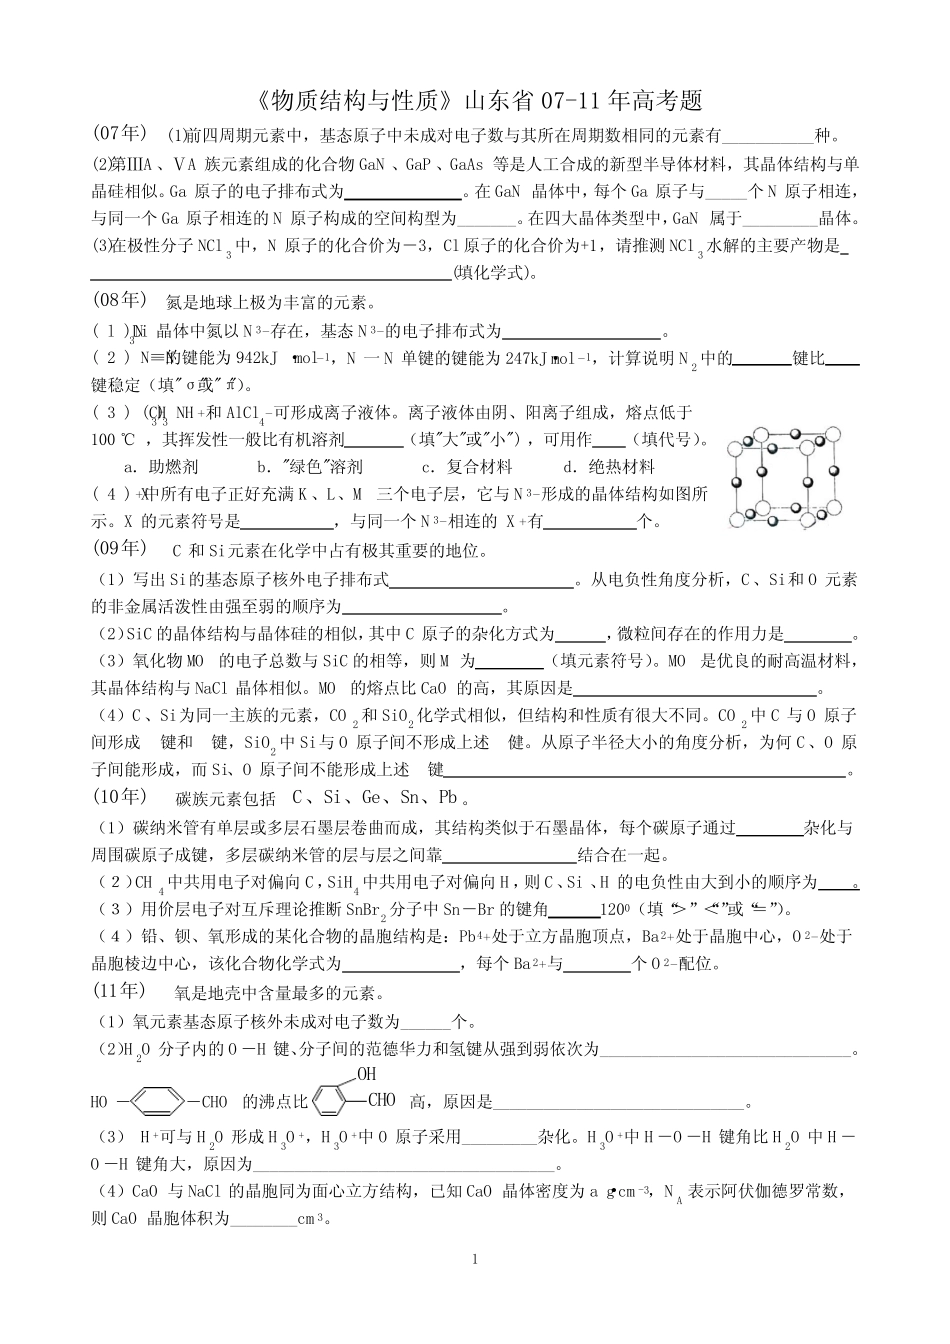 《物质结构与性质》山东省 07-11 年高考题
(07年) (1)前四周期元素中，基态原子中未成对电子数与其所在周期数相同的元素有___________种。
(2)第ⅢA 、ⅤA 族元素组成的化合物 GaN 、GaP 、GaAs 等是人工合成的新型半导体材料，其晶体结构与单
晶硅相似。Ga 原子的电子排布式为______________。在 GaN 晶体中，每个 Ga 原子与_____个 N 原子相连，
与同一个 Ga 原子相连的 N 原子构成的空间构型为_______。在四大晶体类型中，GaN 属于_________晶体。
(3)在极性分子 NCl3 中，N 原子的化合价为－3，Cl 原子的化合价为+1，请推测 NCl3 水解的主要产物是_
___________________________________________(填化学式)。
(08年) 氮是地球上极为丰富的元素。
( 1 )Li3N 晶体中氮以 N3-存在，基态 N3-的电子排布式为___________________。
( 2 ) N≡N的键能为 942kJ •mol-1，N 一 N 单键的键能为 247kJ•mol-1，计算说明 N2 中的_______键比____
键稳定（填"σ"或"π"）。
( 3 ) (CH3)3NH+和 AlCl4-可形成离子液体。离子液体由阴、阳离子组成，熔点低于
100 ℃ ，其挥发性一般比有机溶剂_______（填"大"或"小"），可用作____（填代号）。
a．助燃剂 b．"绿色"溶剂 c．复合材料 d．绝热材料
( 4 ) X+中所有电子正好充满 K 、L、M 三个电子层，它与 N3-形成的晶体结构如图所
示。X 的元素符号是___________，与同一个 N3-相连的 X+有___________个。
(09年) C 和 Si元素在化学中占有极其重要的地位。
（1）写出 Si的基态原子核外电子排布式______________________。从电负性角度分析，C 、Si和 O 元素
的非金属活泼性由强至弱的顺序为___________________。
（2）SiC 的晶体结构与晶体硅的相似，其中 C 原子的杂化方式为______，微粒间存在的作用力是________。
（3）氧化物 MO 的电子总数与 SiC 的相等，则 M 为________（填元素符号）。MO 是优良的耐高温材料，
其晶体结构与 NaCl 晶体相似。MO 的熔点比 CaO 的高，其原因是_____________________________。
（4）C 、Si为同一主族的元素，CO2 和 SiO2 化学式相似，但结构和性质有很大不同。CO2 中 C 与 O 原子
间形成 键和 键，SiO2 中 Si与 O 原子间不形成上述 健。从原子半径大小的角度分析，为何 C 、O 原
子间能形成，而 Si、O 原子间不能形成上述 键________________________________________________。
(10年) 碳族元素包括 C 、Si 、Ge、Sn、Pb 。
（1）碳纳米管有单层或多层石墨层卷曲而成，其结构类似于石墨晶体，每个碳原子通过________杂化与
周围碳原子成键，多层碳纳米管的层与层之间靠________________结合在一起。
（２）CH4 中共用电子对偏向 C，SiH4 中共用电子对偏向 H，则 C 、Si 、H 的电负性由大到小的顺序为____。
（３）用价层电子对互斥理论推断 SnBr2 分子中 Sn－Br 的键角______1200（填“>”“<”或“=”）。
（４）铅、钡、氧形成的某化合物的晶胞结构是：Pb4+处于立方晶胞顶点，Ba2+处于晶胞中心，O2-处于
晶胞棱边中心，该化合物化学式为______________，每个 Ba2+与________个 O2-配位。
(11年) 氧是地壳中含量最多的元素。
（1）氧元素基态原子核外未成对电子数为______个。
（2）H2O 分子内的 O－H 键、分子间的范德华力和氢键从强到弱依次为______________________________。
OH
HO － －CHO 的沸点比 －CHO 高，原因是______________________________。
（3） H+可与 H2O 形成 H3O+，H3O+中 O 原子采用_________杂化。H3O+中 H－O－H 键角比 H2O 中 H－
O－H 键角大，原因为____________________________________。
（4）CaO 与 NaCl 的晶胞同为面心立方结构，已知 CaO 晶体密度为 a g•cm-3，NA 表示阿伏伽德罗常数，
则 CaO 晶胞体积为________cm3。
1